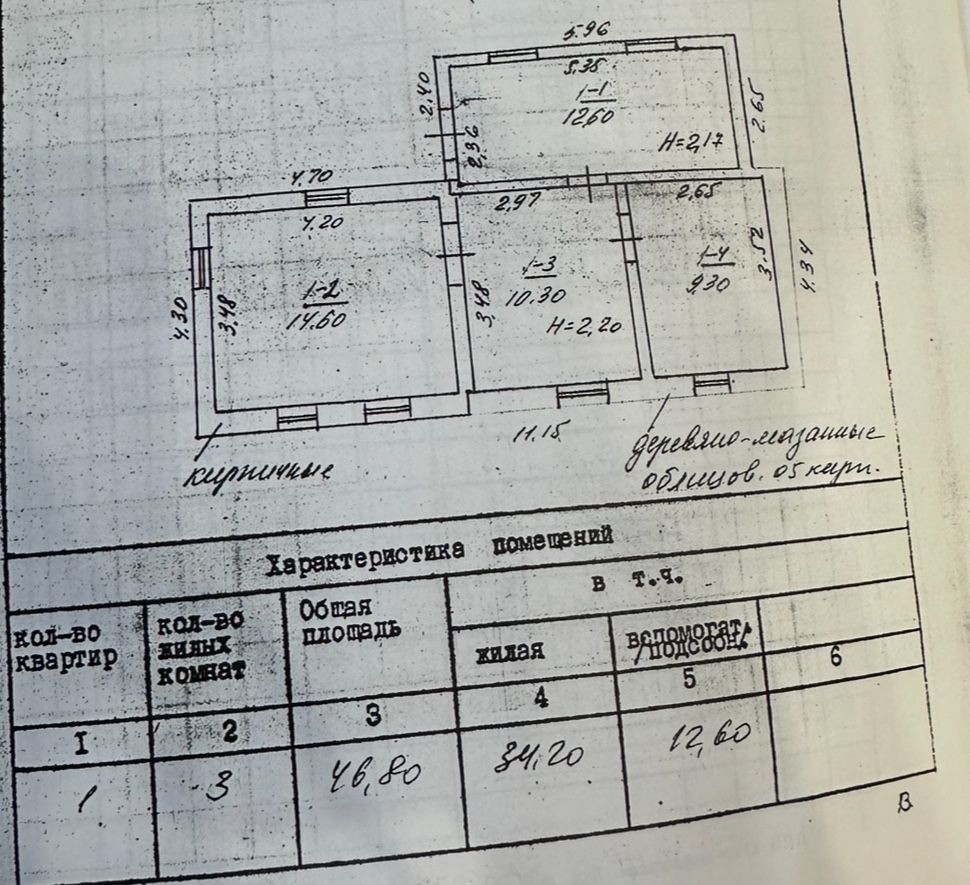 5.96
5.35
1-1
12,60
2.40
2,36
H=2,17
2.65
4.70
4.20
2,97
2,65
1-2
14.60
4.30
3,48
1-3
10.30
3,48
H=2,20
1-4
9,30
3,52
4.34
11.15
кирпичные
деревяно-мазанные
облицов. 05 кирп.
Характеристика помещений
кол-во
квартир
кол-во
жилых
комнат
Общая
площадь
в т.ч.
жилая
вспомогат.
/подсобн.
I
2
3
4
5
6
1
3
46,80
34.20
12,60
В